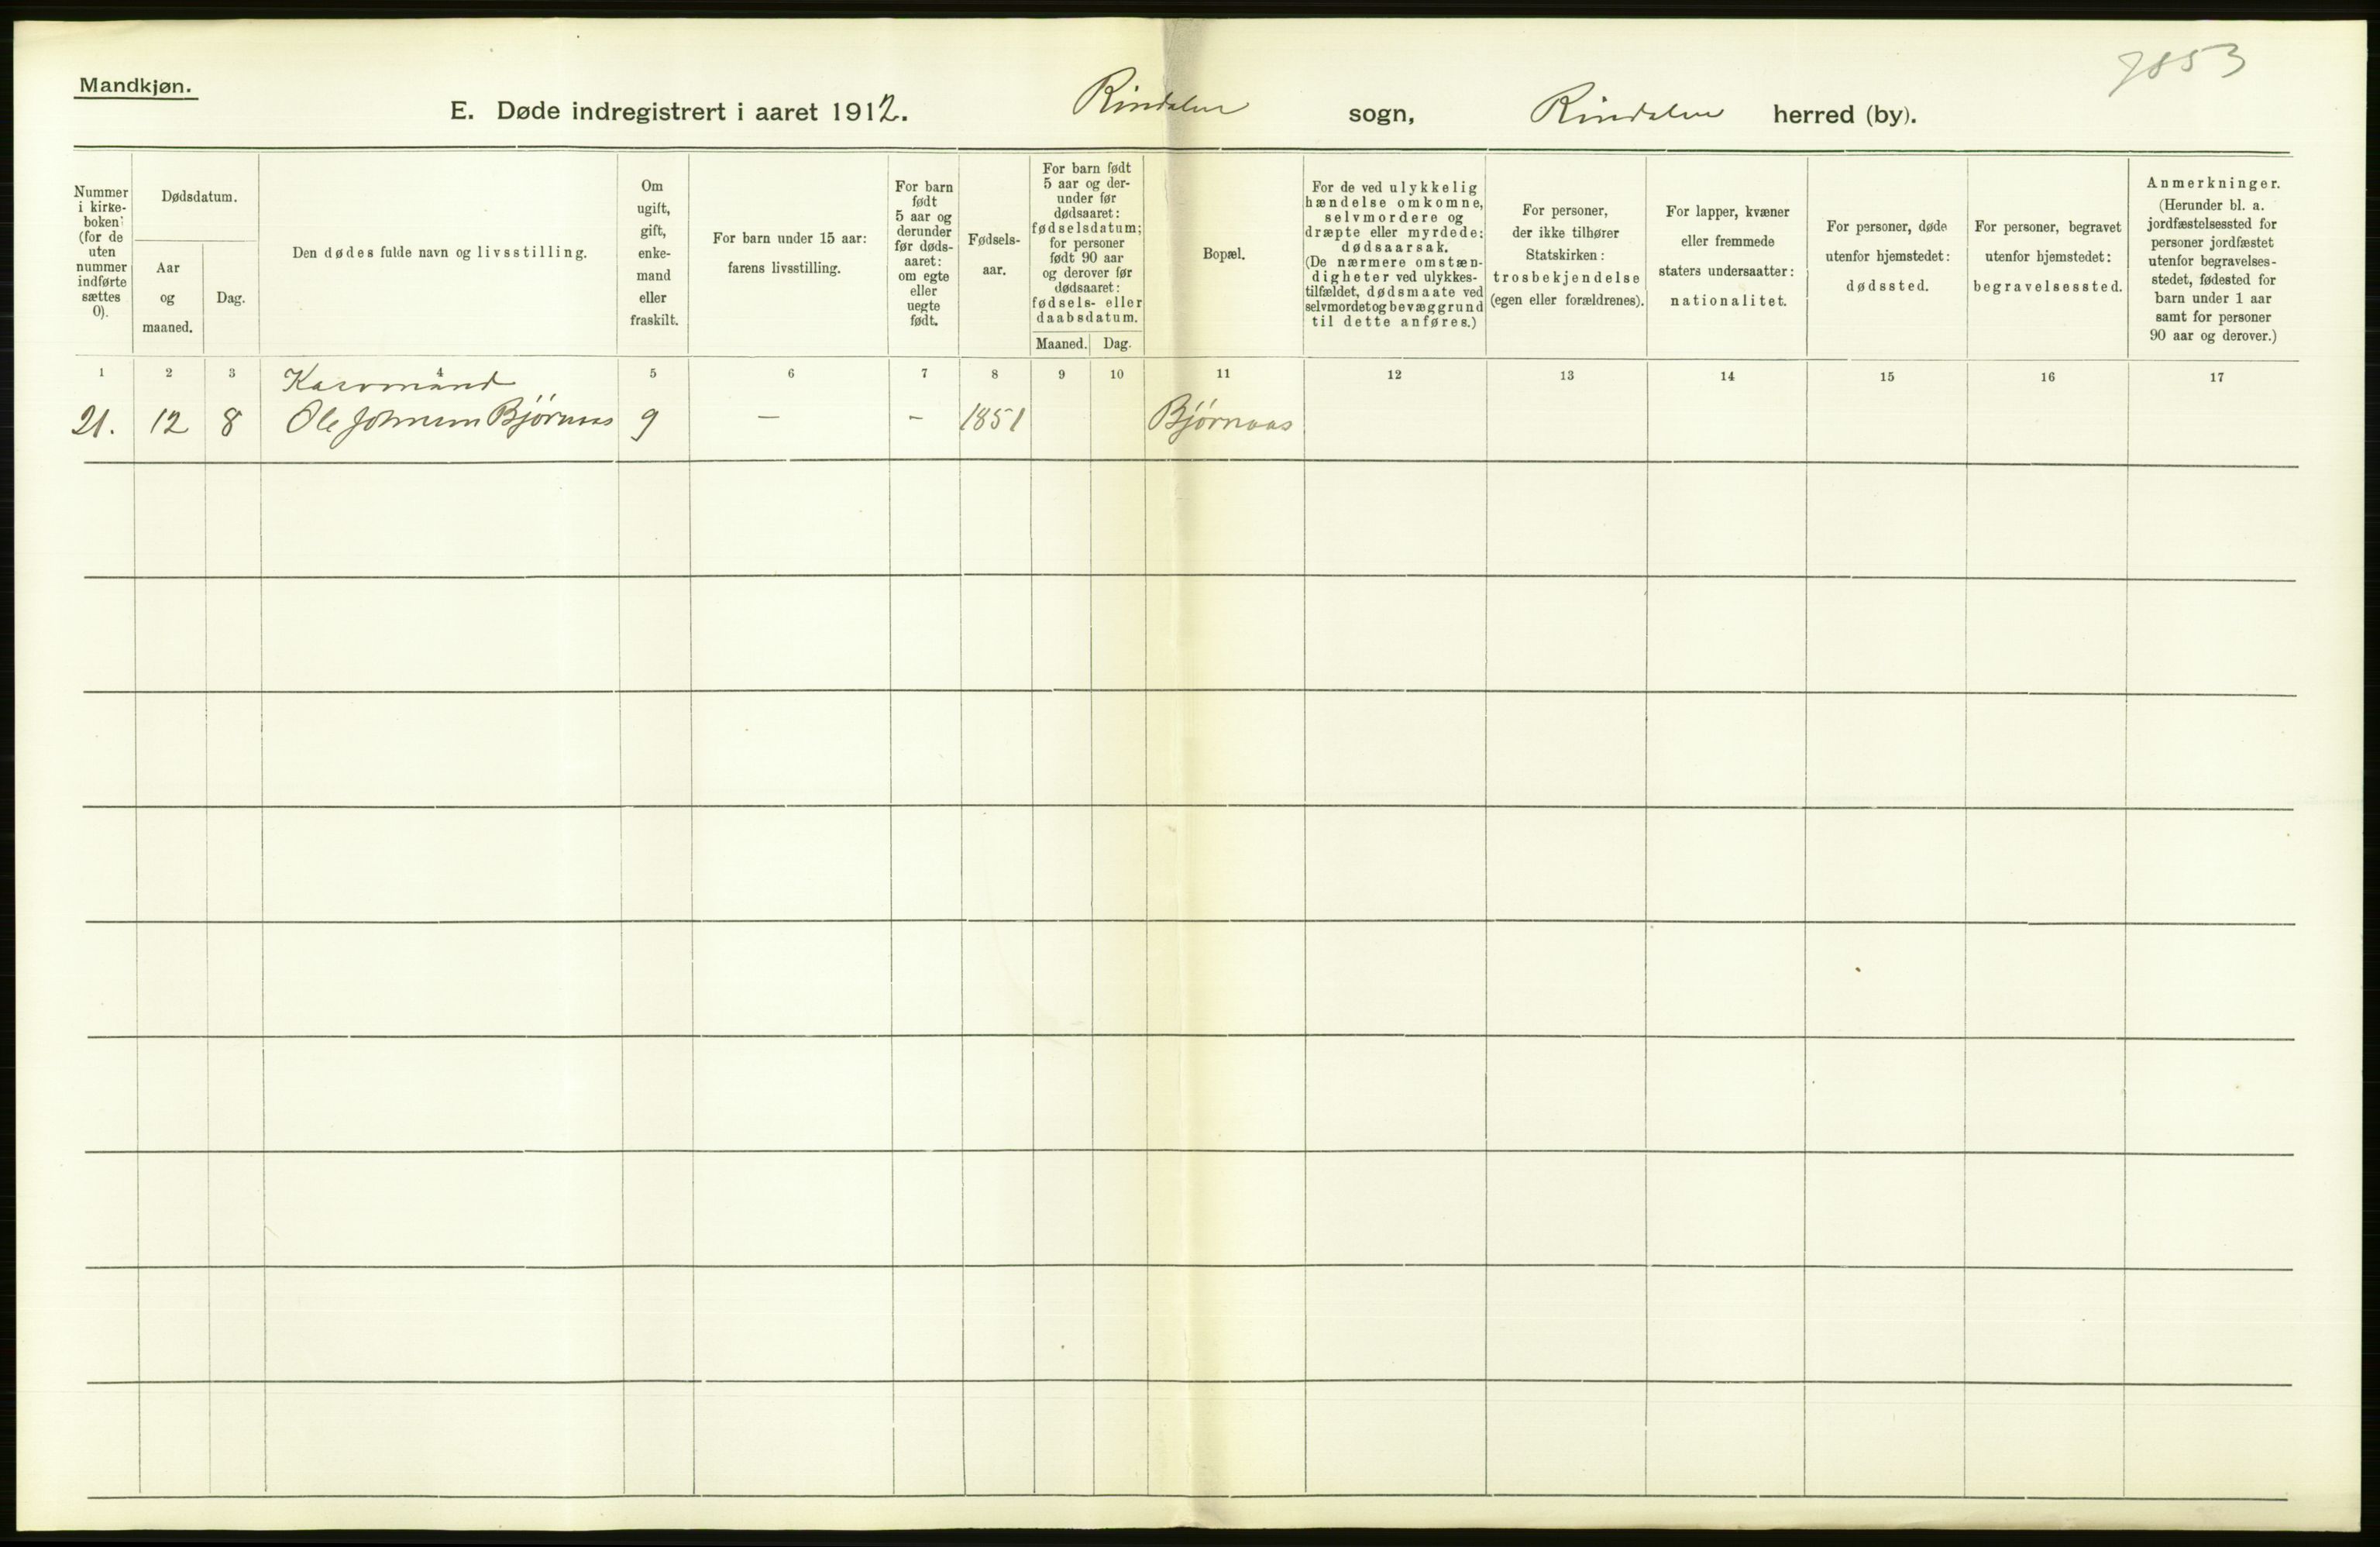 7853
Mandkjøn.
E. Døde indregistrert i aaret 1912. Rindalen sogn, Rindalen herred (by).
Nummer
i kirke-
boken
(for de
uten
nummer
indførte
sættes
0).
Dødsdatum.
Aar
og
maaned.
Dag.
Den dødes fulde navn og livsstilling.
Om
ugift,
gift,
enke-
mand
eller
fraskilt.
For barn under 15 aar:
farens livsstilling.
For barn
født
5 aar og
derunder
før døds-
aaret:
om egte
eller
uegte
født.
Fødsels-
aar.
For barn født
5 aar og der-
under før
dødsaaret:
fødselsdatum;
for personer
født 90 aar
og derover før
dødsaaret:
fødsels- eller
daabsdatum.
Maaned. Dag.
Bopæl.
For de ved ulykkelig
hændelse omkomne,
selvmordere og
dræpte eller myrdede:
dødsaarsak.
(De nærmere omstæn-
digheter ved ulykkes-
tilfældet, dødsmaate ved
selvmordet og bevæggrund
til dette anføres.)
For personer,
der ikke tilhører
Statskirken:
trosbekjendelse
(egen eller forældrenes).
For lapper, kvæner
eller fremmede
staters undersaatter:
nationalitet.
For personer, døde
utenfor hjemstedet:
dødssted.
For personer, begravet
utenfor hjemstedet:
begravelsessted.
Anmerkninger.
(Herunder bl. a.
jordfæstelsessted for
personer jordfæstet
utenfor begravelses-
stedet, fødested for
barn under 1 aar
samt for personer
90 aar og derover.)
1 2 3 4 5 6 7 8 9 10 11 12 13 14 15 16 17
Kaarmand
21. 12 8 Ole Johnsen Bjørnaas g — - 1851 Bjørnaas